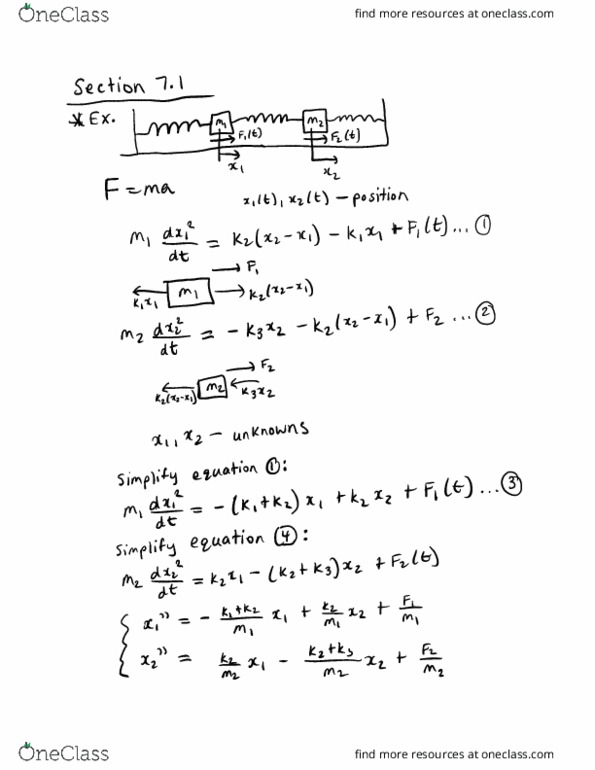 OneClass
find more resources at oneclass.com
Section 7.1
* Ex.
m₁ m₂
F₁(t) F₂(t)
x₁ x₂
F = ma
x₁(t), x₂(t) – position
m₁ dx₁²/dt = k₂(x₂-x₁) - k₁x₁ + F₁(t) ... ①
F₁
k₁x₁ m₁ k₂(x₂-x₁)
m₂ dx₂²/dt = - k₃x₂ - k₂(x₂-x₁) + F₂ ... ②
F₂
k₂(x₂-x₁) m₂ k₃x₂
x₁, x₂ – unknowns
Simplify equation ①:
m₁ dx₁²/dt = -(k₁+k₂) x₁ + k₂ x₂ + F₁(t) ... ③
Simplify equation ④:
m₂ dx₂²/dt = k₂x₁ - (k₂+k₃)x₂ + F₂(t)
{ x₁'' = - (k₁+k₂)/m₁ x₁ + k₂/m₁ x₂ + F₁/m₁
x₂'' = k₂/m₂ x₁ - (k₂+k₃)/m₂ x₂ + F₂/m₂
OneClass
find more resources at oneclass.com